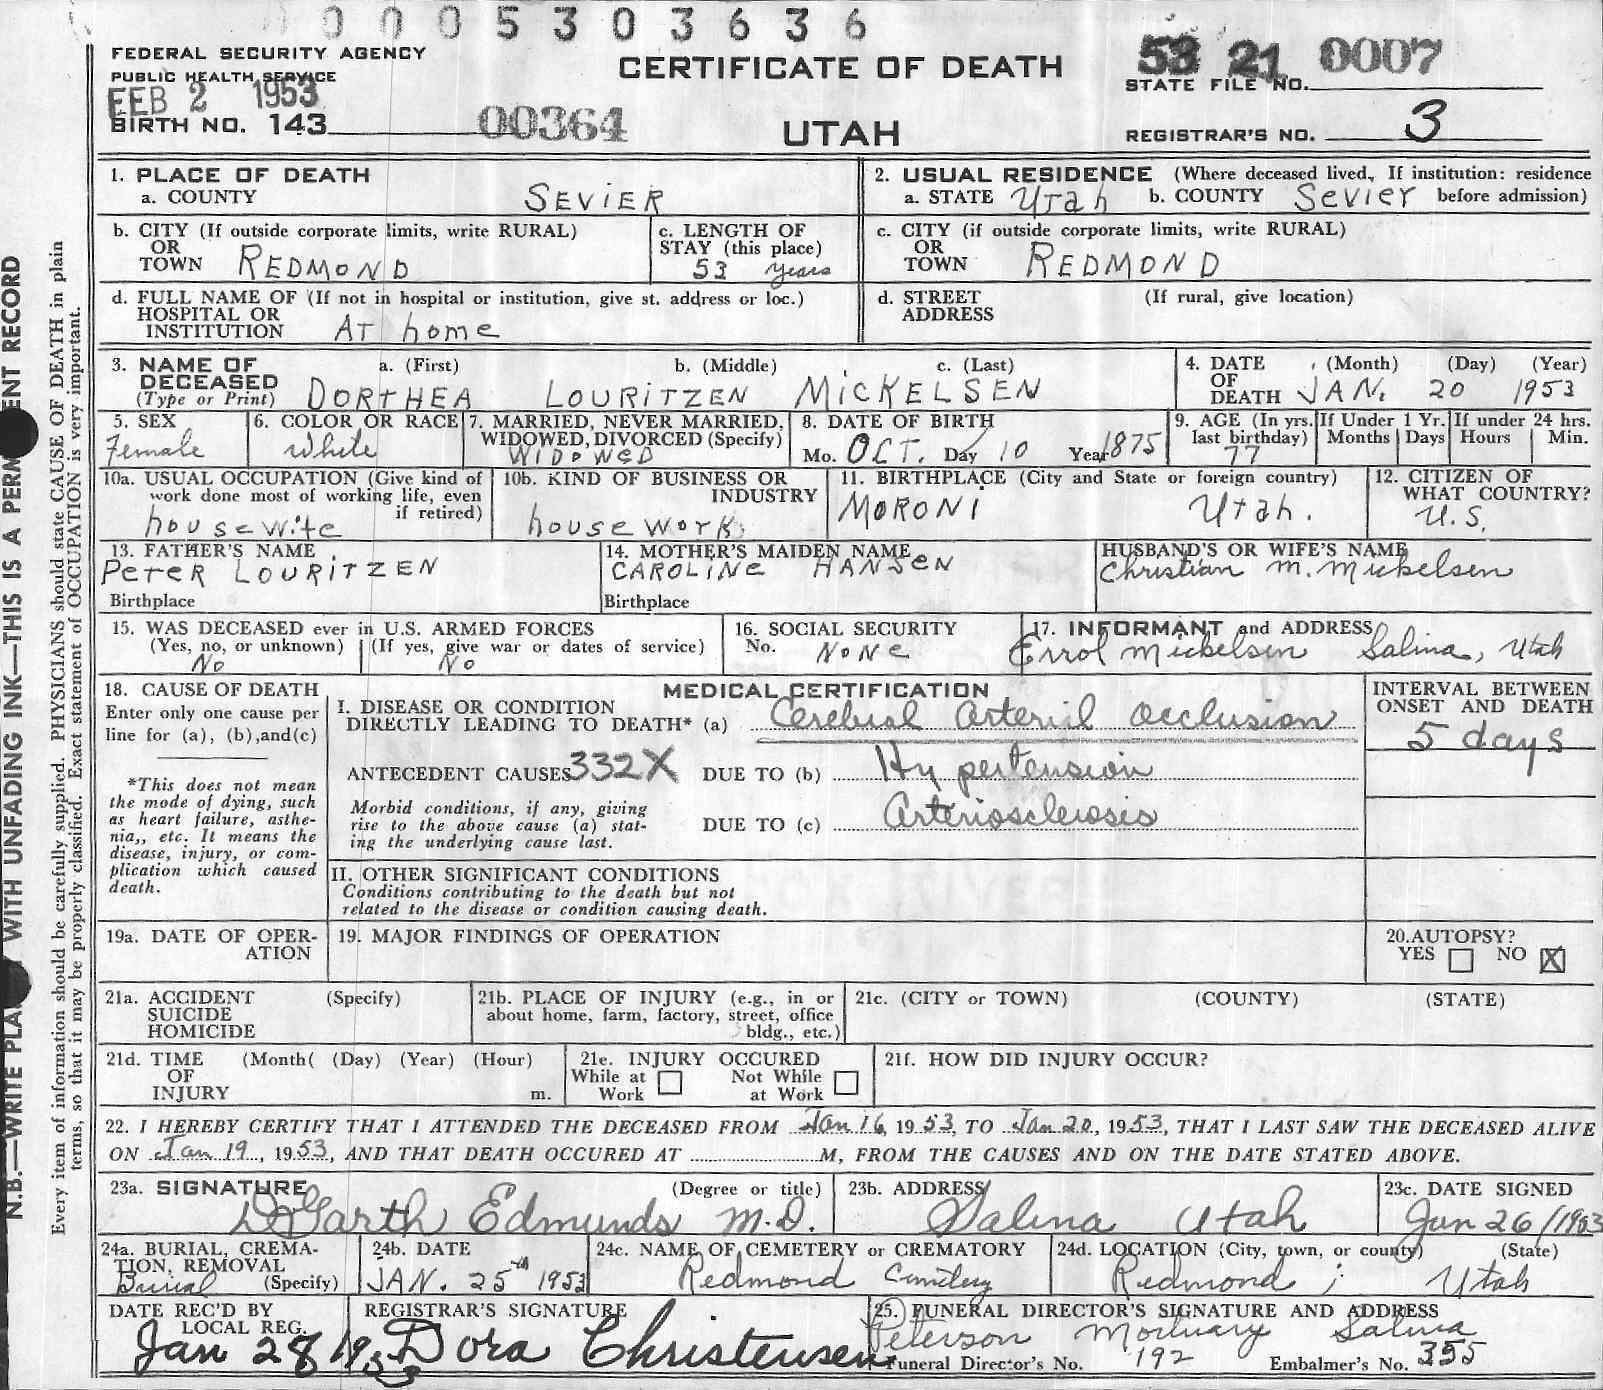 0005303636
FEDERAL SECURITY AGENCY
PUBLIC HEALTH SERVICE
FEB 2 1953
BIRTH NO. 143
00364
CERTIFICATE OF DEATH
UTAH
53 21 0007
STATE FILE NO.
REGISTRAR'S NO. 3
1. PLACE OF DEATH
a. COUNTY SEVIER
2. USUAL RESIDENCE (Where deceased lived, If institution: residence
a. STATE Utah b. COUNTY Sevier before admission)
b. CITY (If outside corporate limits, write RURAL)
OR
TOWN REDMOND
c. LENGTH OF
STAY (this place)
53 years
c. CITY (if outside corporate limits, write RURAL)
OR
TOWN REDMOND
d. FULL NAME OF (If not in hospital or institution, give st. address or loc.)
HOSPITAL OR
INSTITUTION AT home
d. STREET (If rural, give location)
ADDRESS
3. NAME OF a. (First) b. (Middle) c. (Last)
DECEASED
(Type or Print) DORTHEA LOURITZEN MICKELSEN
4. DATE (Month) (Day) (Year)
OF
DEATH JAN. 20 1953
5. SEX
Female
6. COLOR OR RACE
White
7. MARRIED, NEVER MARRIED,
WIDOWED, DIVORCED (Specify)
WIDOWED
8. DATE OF BIRTH
Mo. OCT. Day 10 Year 1875
9. AGE (In yrs.
last birthday)
77
If Under 1 Yr.
Months Days
If under 24 hrs.
Hours Min.
10a. USUAL OCCUPATION (Give kind of
work done most of working life, even
if retired)
housewife
10b. KIND OF BUSINESS OR
INDUSTRY
house work
11. BIRTHPLACE (City and State or foreign country)
MORONI Utah.
12. CITIZEN OF
WHAT COUNTRY?
U.S.
13. FATHER'S NAME
Peter LOURITZEN
Birthplace
14. MOTHER'S MAIDEN NAME
CAROLINE HANSEN
Birthplace
HUSBAND'S OR WIFE'S NAME
Christian M. Mickelsen
15. WAS DECEASED ever in U.S. ARMED FORCES
(Yes, no, or unknown) (If yes, give war or dates of service)
No No
16. SOCIAL SECURITY
No. NONE
17. INFORMANT and ADDRESS
Errol Mickelsen Salina, Utah
18. CAUSE OF DEATH
Enter only one cause per
line for (a), (b),and(c)
*This does not mean
the mode of dying, such
as heart failure, asthe-
nia,, etc. It means the
disease, injury, or com-
plication which caused
death.
MEDICAL CERTIFICATION
I. DISEASE OR CONDITION
DIRECTLY LEADING TO DEATH* (a) Cerebral Arterial Occlusion
ANTECEDENT CAUSES 332X DUE TO (b) Hypertension
Morbid conditions, if any, giving
rise to the above cause (a) stat-
ing the underlying cause last.
DUE TO (c) Arteriosclerosis
INTERVAL BETWEEN
ONSET AND DEATH
5 days
II. OTHER SIGNIFICANT CONDITIONS
Conditions contributing to the death but not
related to the disease or condition causing death.
19a. DATE OF OPER-
ATION
19. MAJOR FINDINGS OF OPERATION
20.AUTOPSY?
YES NO X
21a. ACCIDENT (Specify)
SUICIDE
HOMICIDE
21b. PLACE OF INJURY (e.g., in or
about home, farm, factory, street, office
bldg., etc.)
21c. (CITY or TOWN) (COUNTY) (STATE)
21d. TIME (Month( (Day) (Year) (Hour)
OF
INJURY m.
21e. INJURY OCCURED
While at Not While
Work at Work
21f. HOW DID INJURY OCCUR?
22. I HEREBY CERTIFY THAT I ATTENDED THE DECEASED FROM Jan 16, 1953, TO Jan 20, 1953, THAT I LAST SAW THE DECEASED ALIVE
ON Jan 19, 1953, AND THAT DEATH OCCURED AT M, FROM THE CAUSES AND ON THE DATE STATED ABOVE.
23a. SIGNATURE (Degree or title)
Garth Edmunds M.D.
23b. ADDRESS
Salina Utah
23c. DATE SIGNED
Jan 26/1953
24a. BURIAL, CREMA-
TION, REMOVAL
Burial (Specify)
24b. DATE
JAN. 25th 1953
24c. NAME OF CEMETERY or CREMATORY
Redmond Cemetery
24d. LOCATION (City, town, or county) (State)
Redmond ; Utah
DATE REC'D BY
LOCAL REG.
Jan 28 1953
REGISTRAR'S SIGNATURE
Dora Christensen
25. FUNERAL DIRECTOR'S SIGNATURE AND ADDRESS
Peterson Mortuary Salina
Funeral Director's No. 192 Embalmer's No. 355
N.B.—WRITE PLA WITH UNFADING INK—THIS IS A PERM ENT RECORD
Every item of information should be carefully supplied. PHYSICIANS should state CAUSE OF DEATH in plain
terms, so that it may be properly classified. Exact statement of OCCUPATION is very important.